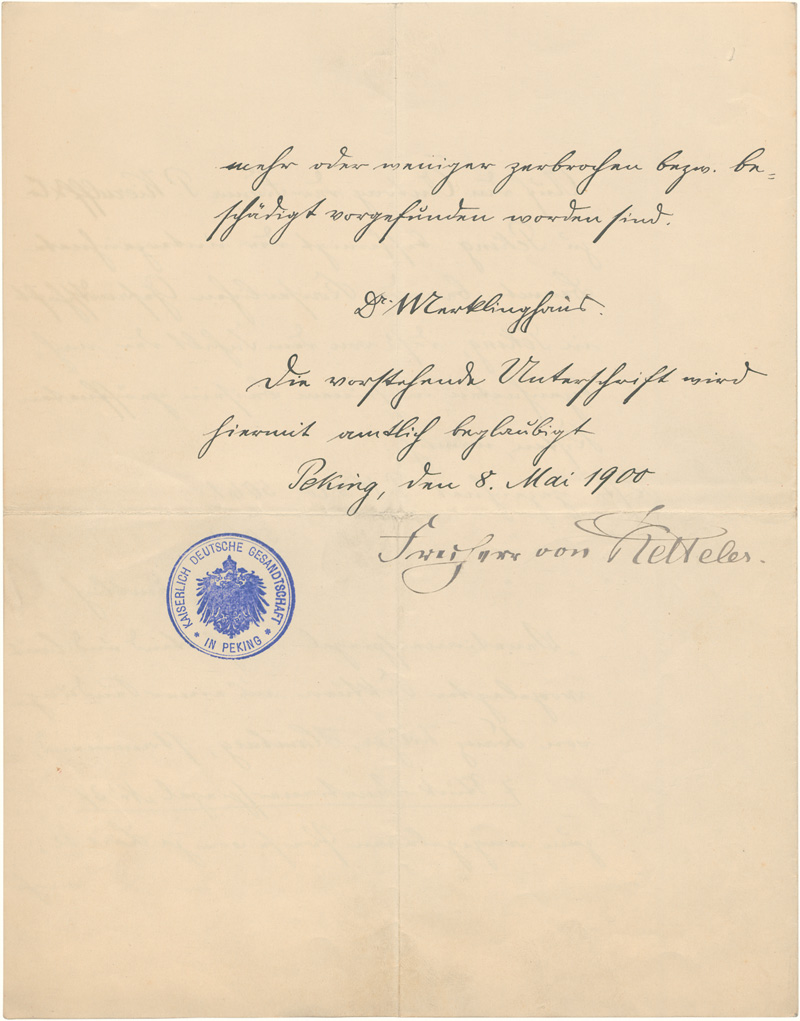 mehr oder weniger zerbrochen bezw. be=
schädigt vorgefunden worden sind.
Dr. Merklinghaus.
Die vorstehende Unterschrift wird
hiermit amtlich beglaubigt
Peking, den 8. Mai 1900
Freiherr von Ketteler.
KAISERLICH DEUTSCHE GESANDTSCHAFT
* IN PEKING *